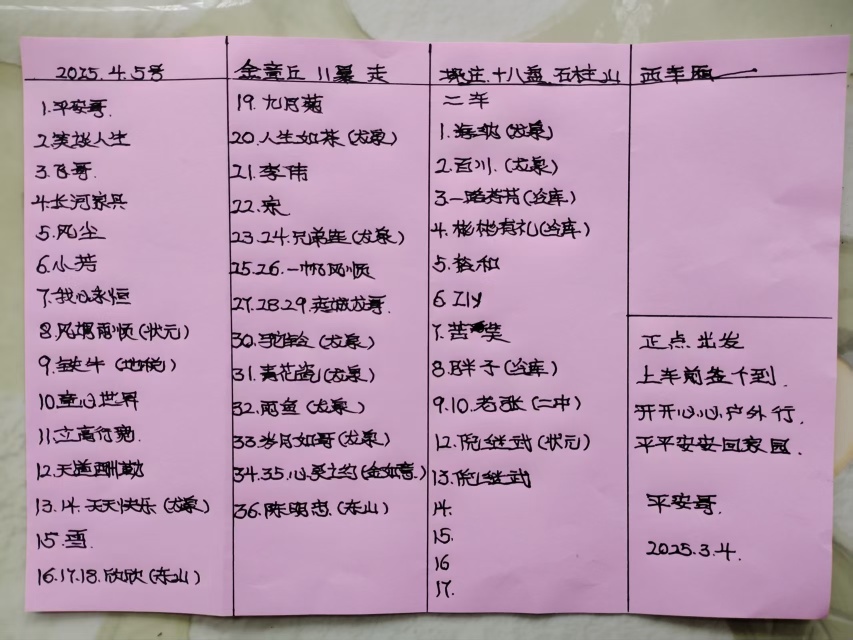 2025.4.5号
1.平安哥.
2.笑谈人生
3.飞哥.
4.长河家具
5.风尘
6.小芳
7.我心永恒
8.风调雨顺(状元)
9.铁牛(地税)
10.童心世界
11.立高行宽.
12.天道酬勤
13.14.天天快乐(龙泉)
15.雪.
16.17.18.欣欣(东山)
金章丘 11暴走
19.九月菊
20.人生如茶(龙泉)
21.李伟
22.宋
23.24.兄弟连(龙泉)
25.26.一帆风顺
27.28.29.英城龙哥.
30.驼铃(龙泉)
31.青花瓷(龙泉)
32.雨鱼(龙泉)
33.岁月如哥(龙泉)
34.35.心灵之约(金如意)
36.陈明忠.(东山)
十八盘 石柱山
二车
1.海纳(龙泉)
2.百川.(龙泉)
3.一路芳(冷库)
4.彬彬有礼(冷库)
5.格和
6.Zly
7.苦笑
8.胖子(冷库)
9.10.老张(二中)
12.倪继武(状元)
13.倪继武
14.
15.
16
17.
两车
正点.出发
上车前签个到.
开开心心户外行.
平平安安回家园.
平安哥.
2025.3.4.